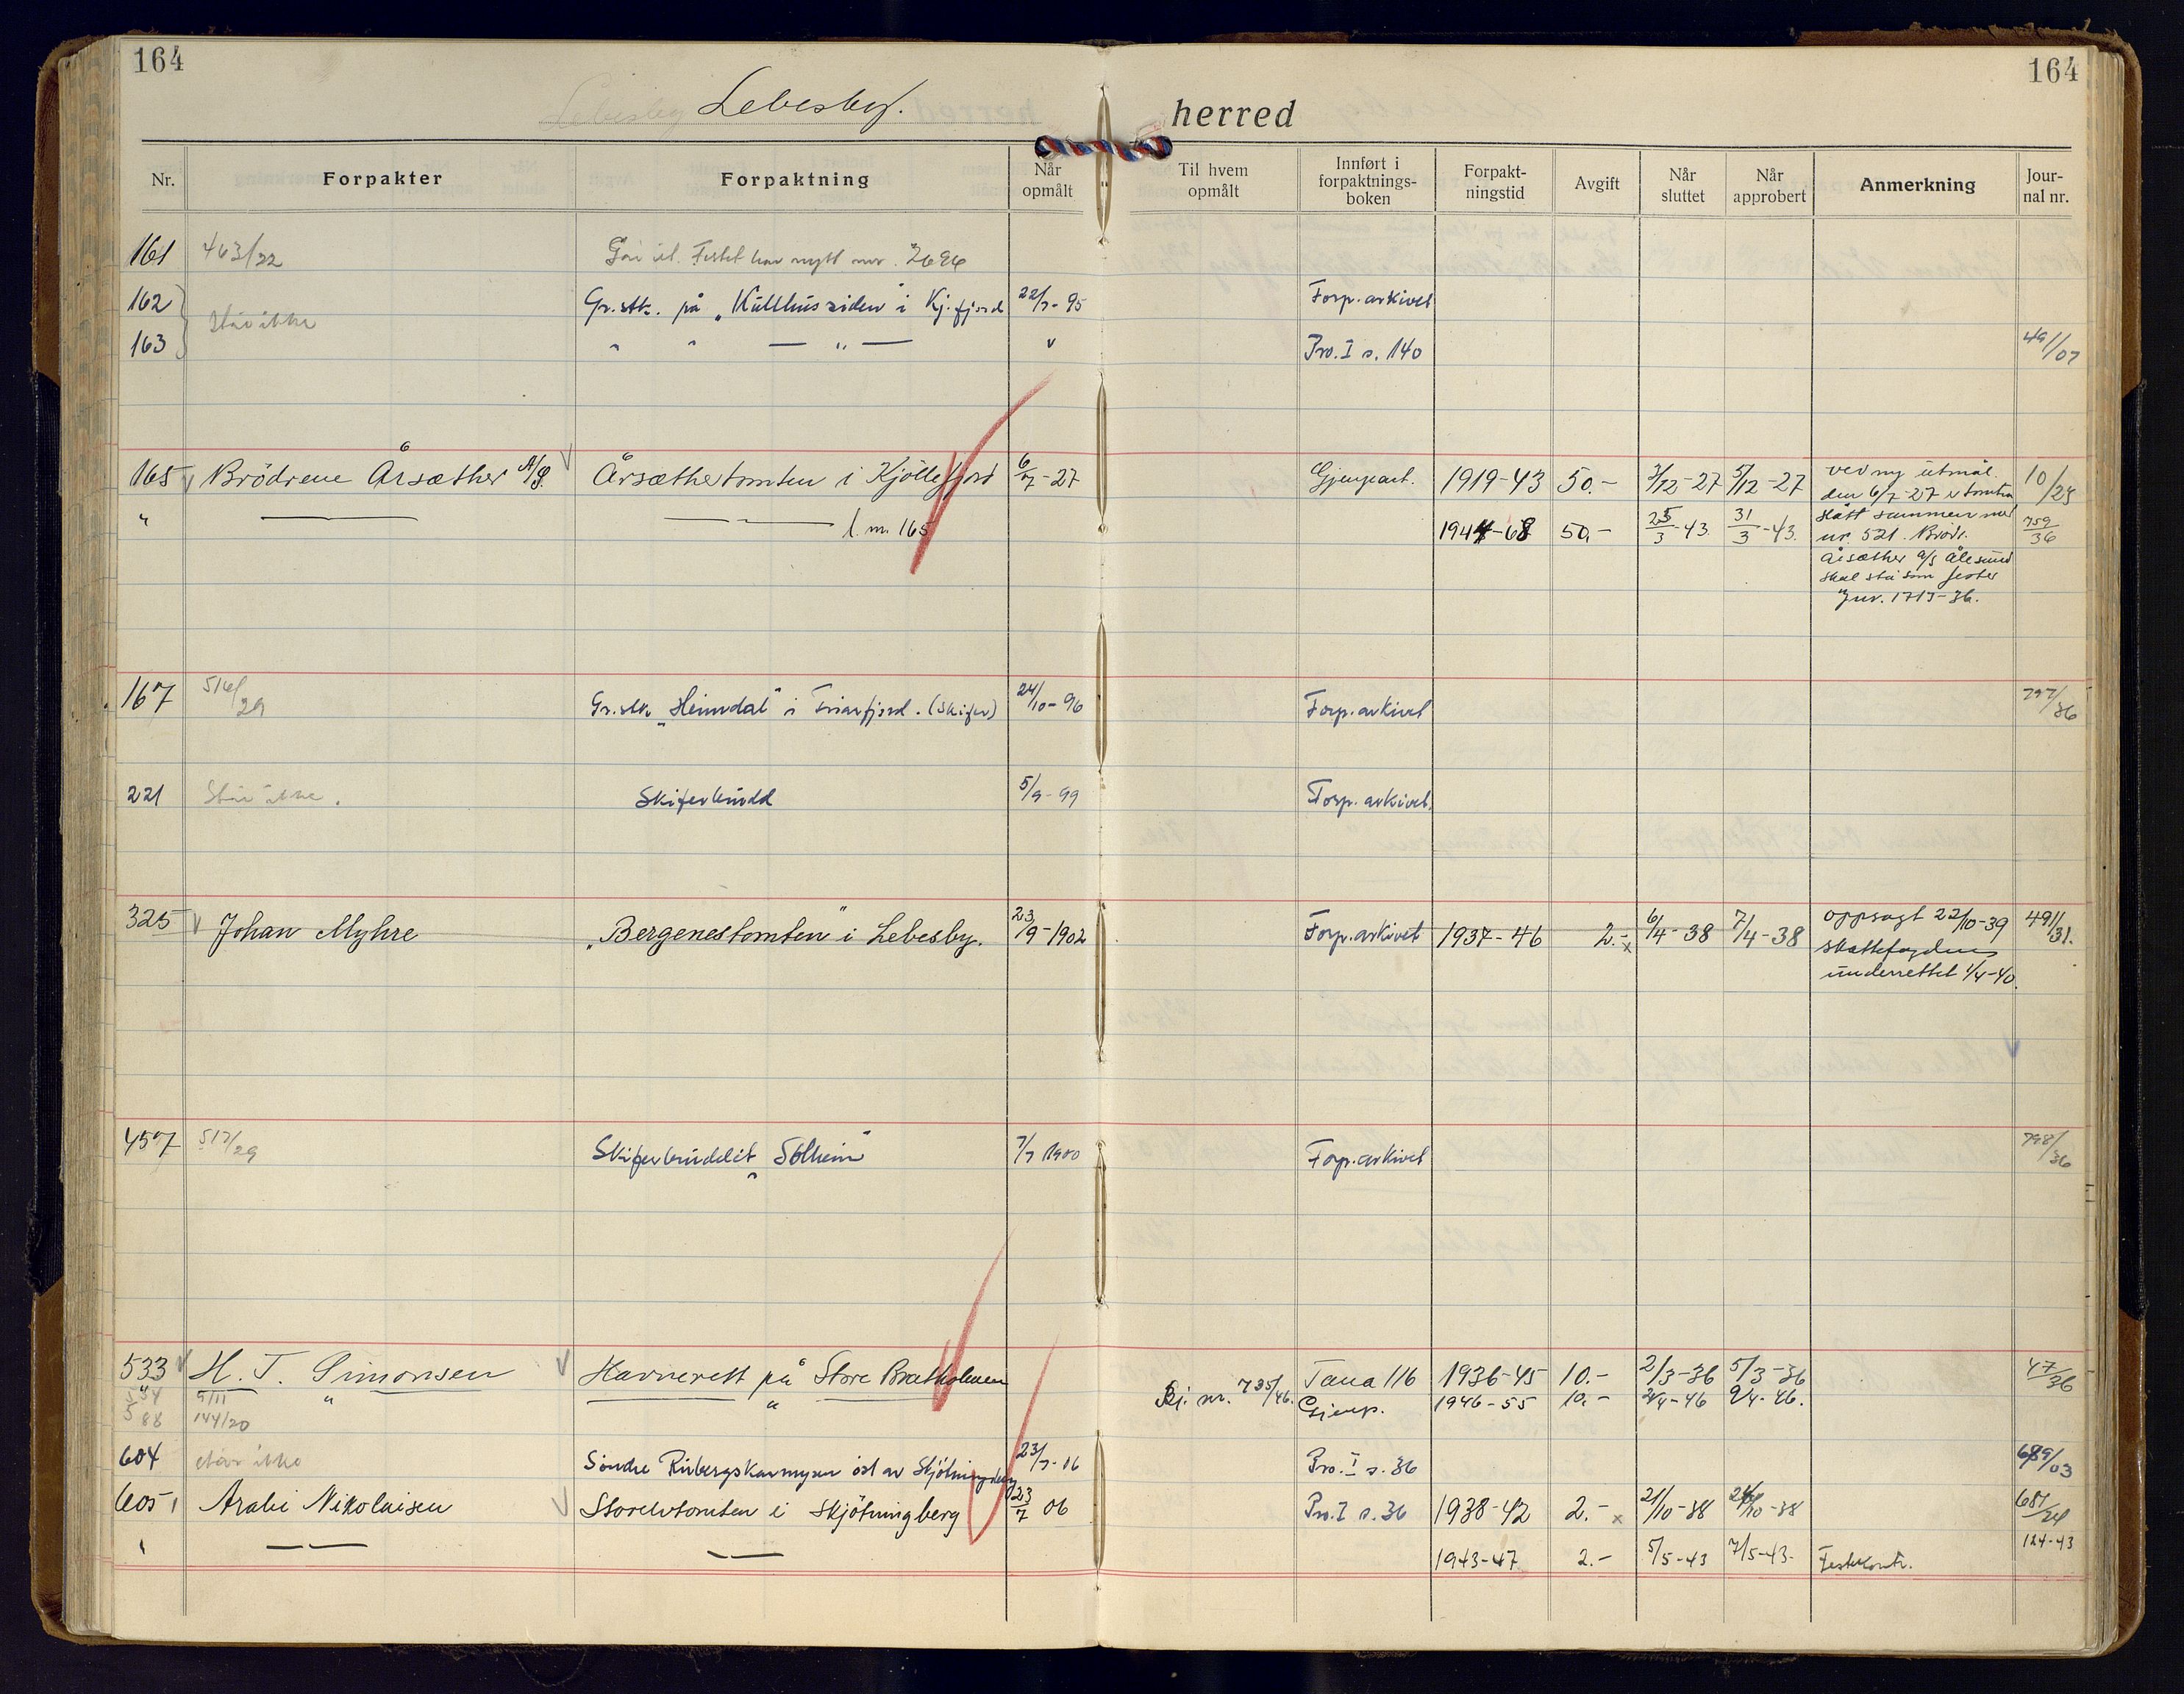 164
164
Lebesby Lebesby. herred
Nr. Forpakter Forpaktning Når opmålt Til hvem opmålt Innført i forpaktnings-boken Forpakt-ningstid Avgift Når sluttet Når approbert Anmerkning Jour-nal nr.
161 463/22 Går ut. Festet har nytt nr. 2696
162 Står ikke Gr.stk. på „Kulthussiden" i Kj.fjord 22/7-95 Forp.arkivet
163 " " — " — " Pro. I s. 140 491/07
165 Brödrene Årsæther A/S. Årsæthertomten i Kjöllefjord 6/7-27 Gjenpart. 1919-43 50.- 3/12-27 5/12-27 ved ny utmål. 10/28
den 6/7-27 er tomten
" — — l.nr. 165 1944-68 50,- 25/3-43. 31/3-43. slått sammen med 759/36
nr. 521. Brödr.
Årsæther a/s Ålesund
skal stå som fester
Jnr. 1713-36.
167 516/29 Gr.stk „Heimdal" i Friarfjord. (Skifer) 24/10-96 Forp.arkivet 797/36
221 Står ikke. Skiferbrudd 5/9-99 Forp.arkivet.
325 Johan Myhre „Bergenestomten" i Lebesby. 23/9-1902 Forp.arkivet 1937-46 2.- x 6/4-38 7/4-38 oppsagt 22/10-39 491/31.
skattefogden
underrettet 1/4-40.
457 517/29 Skiferbruddet „Solheim" 7/7 1900 Forp.arkivet 798/36
533 H. J. Simonsen Havnerett på Store Bratholmen Tana 116 1936-45 10.- 2/3-36 5/3-36 47/36
534 9/11 " " Kj. nr. 735/46. Gjenp. 1946-55 10,- 2/4-46 9/4-46.
588 144/20
604 Står ikke Söndre Risbergskarmyren öst av Skjötningberg 23/7-06 Pro. I s. 36 689/03
605 Arabi Nikolaisen Storelvtomten i Skjötningberg 23/7 06 Pro. I s. 36 1938-42 2.- x 21/10-38 24/10-38 681/24
" — — 1943-47 2.- 5/5-43 7/5-43. Festekontr. 124-43